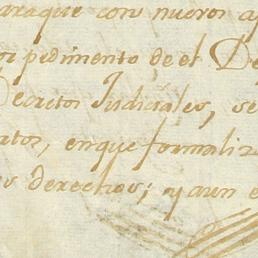 araque con nuevos a
pedimento de el De
Decretos Judiciales, se
enque formaliz
derechos; y aun e